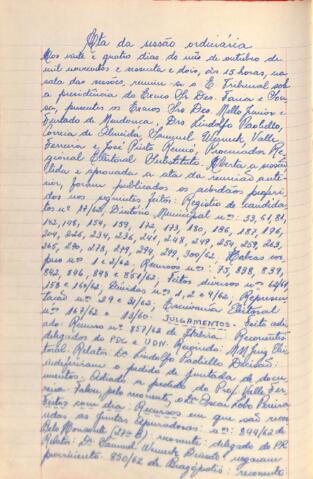 Ata da sessão ordinária
Aos vinte e quatro dias do mês de outubro de
mil novecentos e sessenta e dois, às 15 horas, na
sala das sessões, reuniu-se o E. Tribunal sob
a presidência do Exmo Sr. Des. Faria e Sou-
sa, presentes os Exmos Srs. Des. Mello Junior e
Furtado de Mendonça, Drs. Lindolfo Paolielo,
Corrêa de Almeida, Samuel Werneck, Valle
Ferreira e José Pinto Renó, Procurador Re-
gional Eleitoral Substituto. Aberta a sessão
lida e aprovada a ata da reunião ante-
rior, foram publicados os acórdãos proferi-
dos nos seguintes feitos: Registro de candida-
tos nº 17/62; Diretório Municipal nºs: 33, 61, 81,
142, 148, 154, 159, 172, 173, 180, 186, 187, 196,
204, 226, 234, 236, 241, 248, 249, 254, 259, 263,
265, 270, 273, 279, 294, 299, 300/62; Habeas cor-
pus nºs 1 e 2/62; Recursos nºs: 75, 838, 839,
842, 846, 848 e 851/62; Feitos diversos nºs
158 e 164/62; Dúvidas nºs 1, 2 e 4/62; Represen-
tação nºs 29 e 31/62; Escrivania Eleitoral
nºs 167/62 e 13/60. JULGAMENTOS - Feito adi-
ado: Recurso nº 857/62 de Ibiria. Recorrentes:
delegados do PSD e UDN. Recorrido: MM. Juiz Elei-
toral. Relator: Dr. Lindolfo Paolielo. Decisão:
indeferiram o pedido de juntada de docu-
mentos. Adiado a pedido do Prof. Valle Fer-
reira. Falou, pelo recorrente, o Dr. Oscar Lobo Pereira.
Feitos com dia: Recursos em que são recorri-
das as juntas apuradoras: nºs: 844/62 de
Belo Horizonte (27ª B); recorrente: delegado do PR.
Relator: Dr. Samuel Werneck. Decisão: negaram
provimento. 850/62 de Brazópolis; recorrente